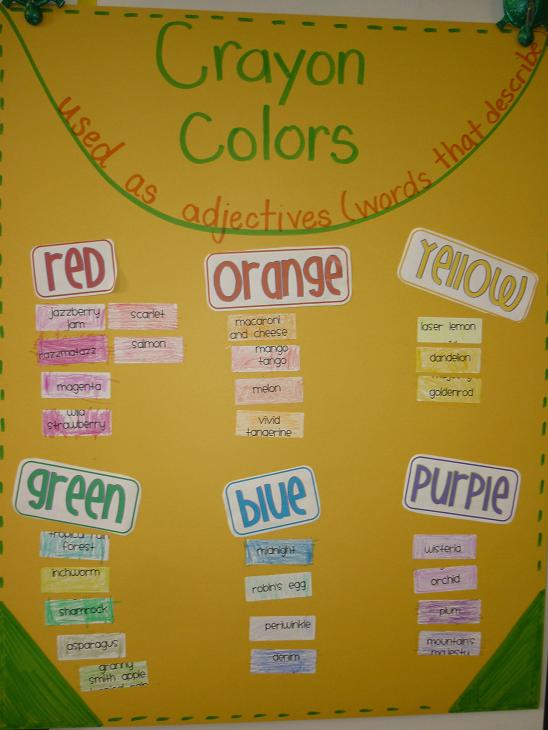 Crayon
Colors
used as adjectives (words that describe
red
jazzberry
jam
scarlet
razzmatazz
salmon
magenta
wild
strawberry
orange
macaroni
and cheese
mango
tango
melon
vivid
tangerine
yellow
laser lemon
dandelion
goldenrod
green
tropical rain
forest
inchworm
shamrock
asparagus
granny
smith apple
blue
midnight
robin's egg
periwinkle
denim
purple
wisteria
orchid
plum
mountains
majesty